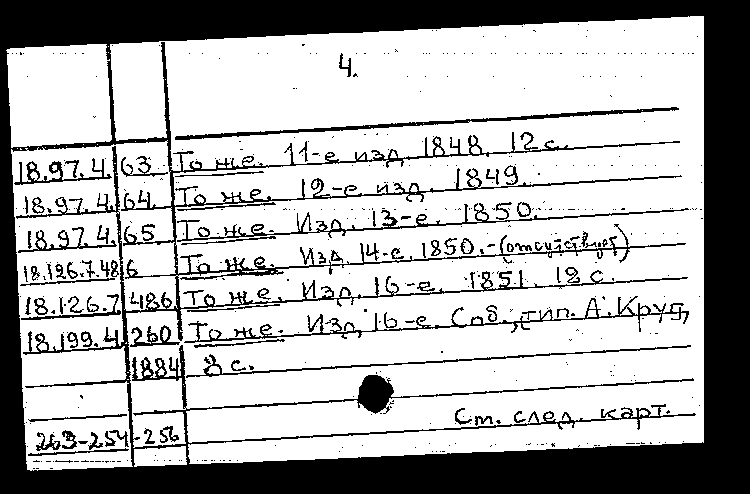 4.
18.97.4. 63 То же. 11-е изд. 1848. 12 с.
18.97.4. 64. То же. 12-е изд. 1849.
18.97.4. 65 То же. Изд. 13-е. 1850.
18.126.7.486 То же. Изд. 14-е. 1850.-(отсутствует)
18.126.7 486 То же. Изд. 16-е. 1851. 12 с.
18.199.4 260 То же. Изд 16-е. Спб., тип. А. Круп,
1884 8 с.
См. след. карт.
263-254-256